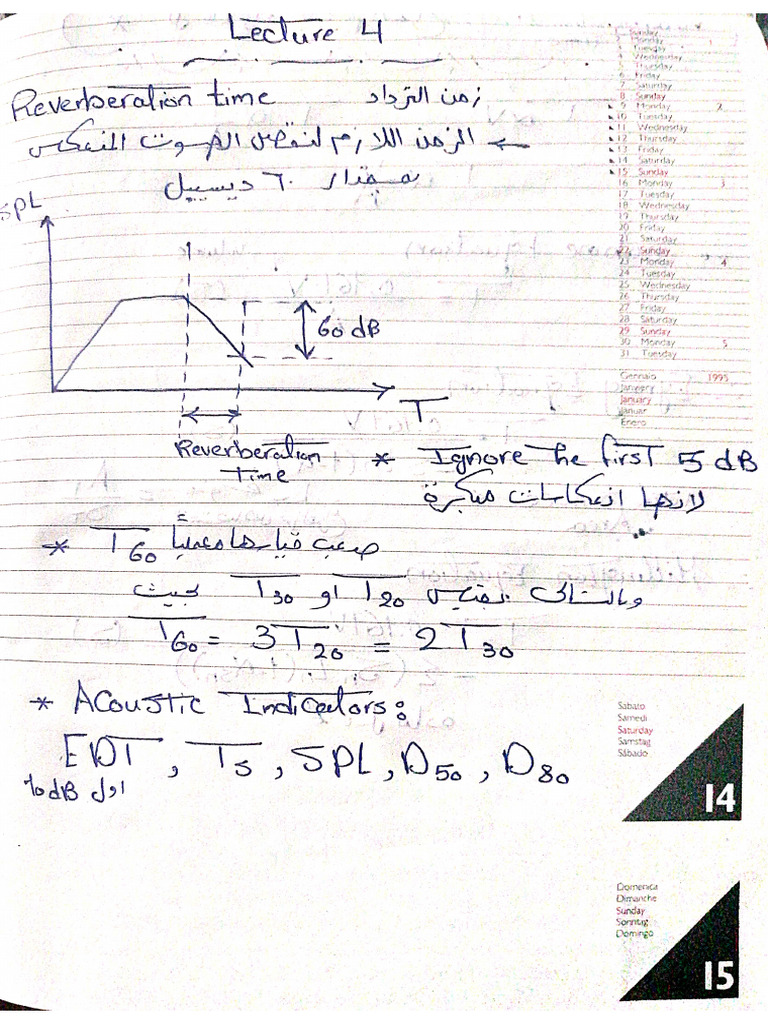 Lecture 4
Reverberation time زمن الترداد
← الزمن اللازم لنقص الصوت المنعكس
بمقدار ٦٠ ديسيبل
SPL
60 dB
T
Reverberation
time
* Ignore the first 5 dB
لانها انعكاسات مبكرة
* T60 صعب قياسها عملياً
وبالتالي نقيس T20 او T30 بحيث
T60 = 3 T20 = 2 T30
* Acoustic Indicators:
EDT, Ts, SPL, D50, D80
اول 10 dB
Sunday
Monday
Tuesday
4 Wednesday
Thursday
6 Friday
7 Saturday
8 Sunday
9 Monday 2
10 Tuesday
11 Wednesday
12 Thursday
13 Friday
14 Saturday
15 Sunday
16 Monday 3
17 Tuesday
18 Wednesday
19 Thursday
20 Friday
21 Saturday
22 Sunday
23 Monday 4
24 Tuesday
25 Wednesday
26 Thursday
27 Friday
28 Saturday
29 Sunday
30 Monday 5
31 Tuesday
Gennaio 1995
January
January
Januar
Enero
Sabato
Samedi
Saturday
Samstag
Sábado
14
Domenica
Dimanche
Sunday
Sonntag
Domingo
15